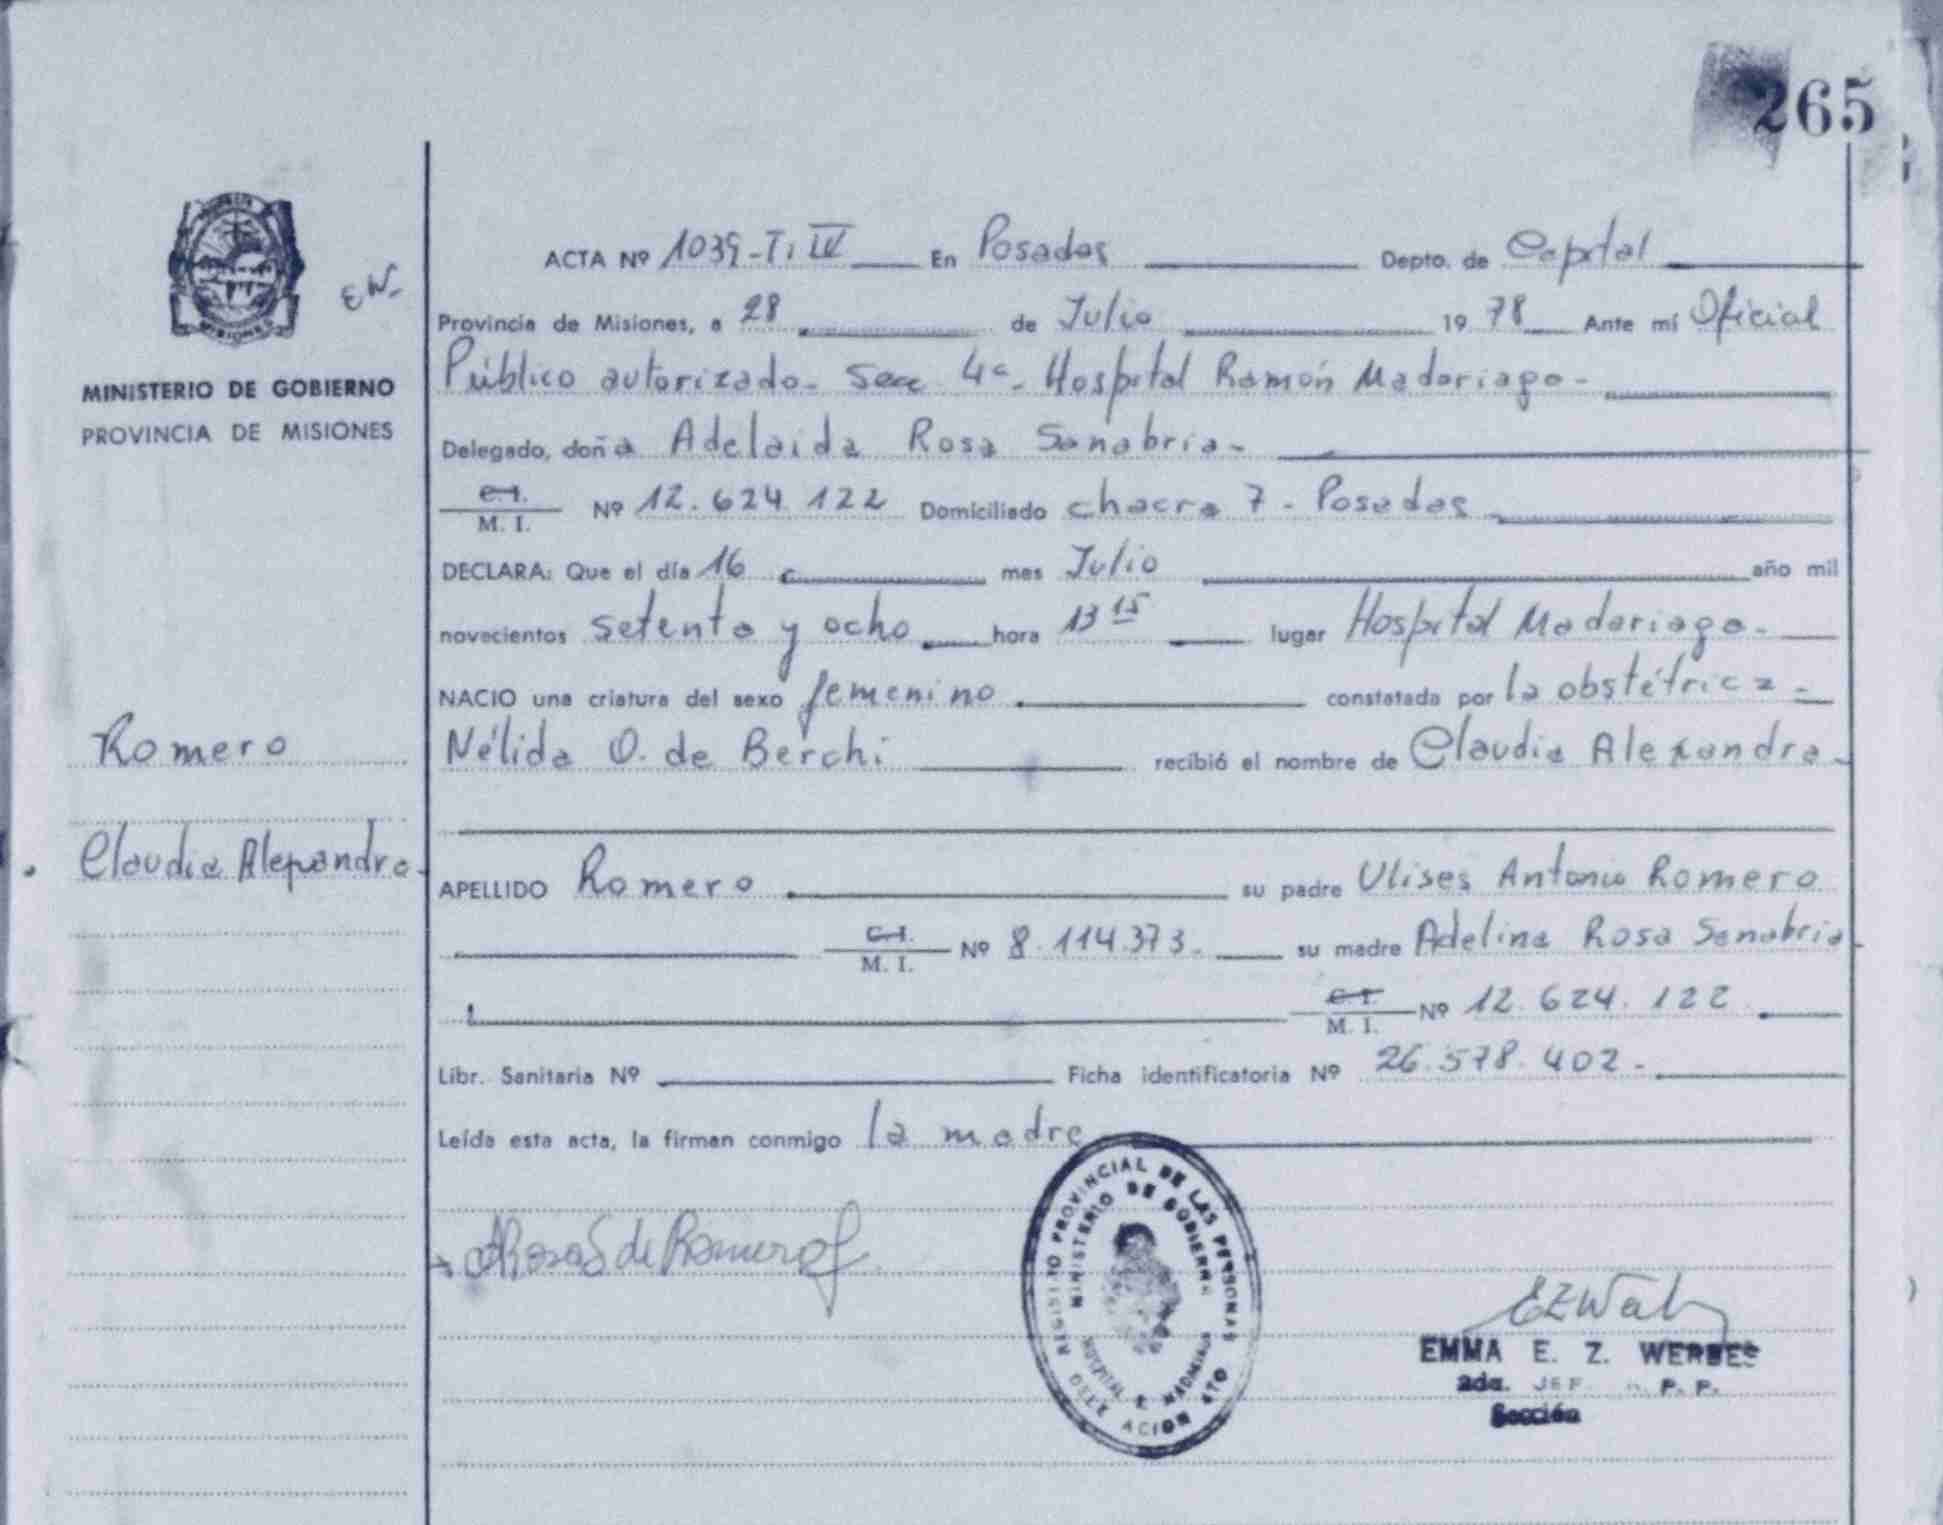 265
ACTA Nº 1039-T. IV En Posadas Depto. de Capital
EW-
Provincia de Misiones, a 28 de Julio 1978 Ante mí Oficial
MINISTERIO DE GOBIERNO
PROVINCIA DE MISIONES
Público autorizado- Secc 4ª- Hospital Ramón Madariaga-
Delegado, doña Adelaida Rosa Sanabria-
C.I.
M. I. Nº 12.624.122 Domiciliado chacra 7 - Posadas
DECLARA: Que el día 16 mes Julio año mil
novecientos setenta y ocho hora 13 15 lugar Hospital Madariaga-
NACIO una criatura del sexo femenino constatada por la obstétrica-
Romero
Nélida O. de Berchi recibió el nombre de Claudia Alexandra-
Claudia Alexandra-
APELLIDO Romero su padre Ulises Antonio Romero
C.I.
M. I. Nº 8.114.373.- su madre Adelina Rosa Sanabria-
C.I.
M. I. Nº 12.624.122
Libr. Sanitaria Nº Ficha identificatoria Nº 26.578.402.-
Leída esta acta, la firman conmigo la madre
REGISTRO PROVINCIAL DE LAS PERSONAS
MINISTERIO DE GOBIERNO
HOSPITAL R. MADARIAGA
DELEGACION
ARosaS de Romero
EMMA E. Z. WERBES
2da. JEF P. P.
Sección